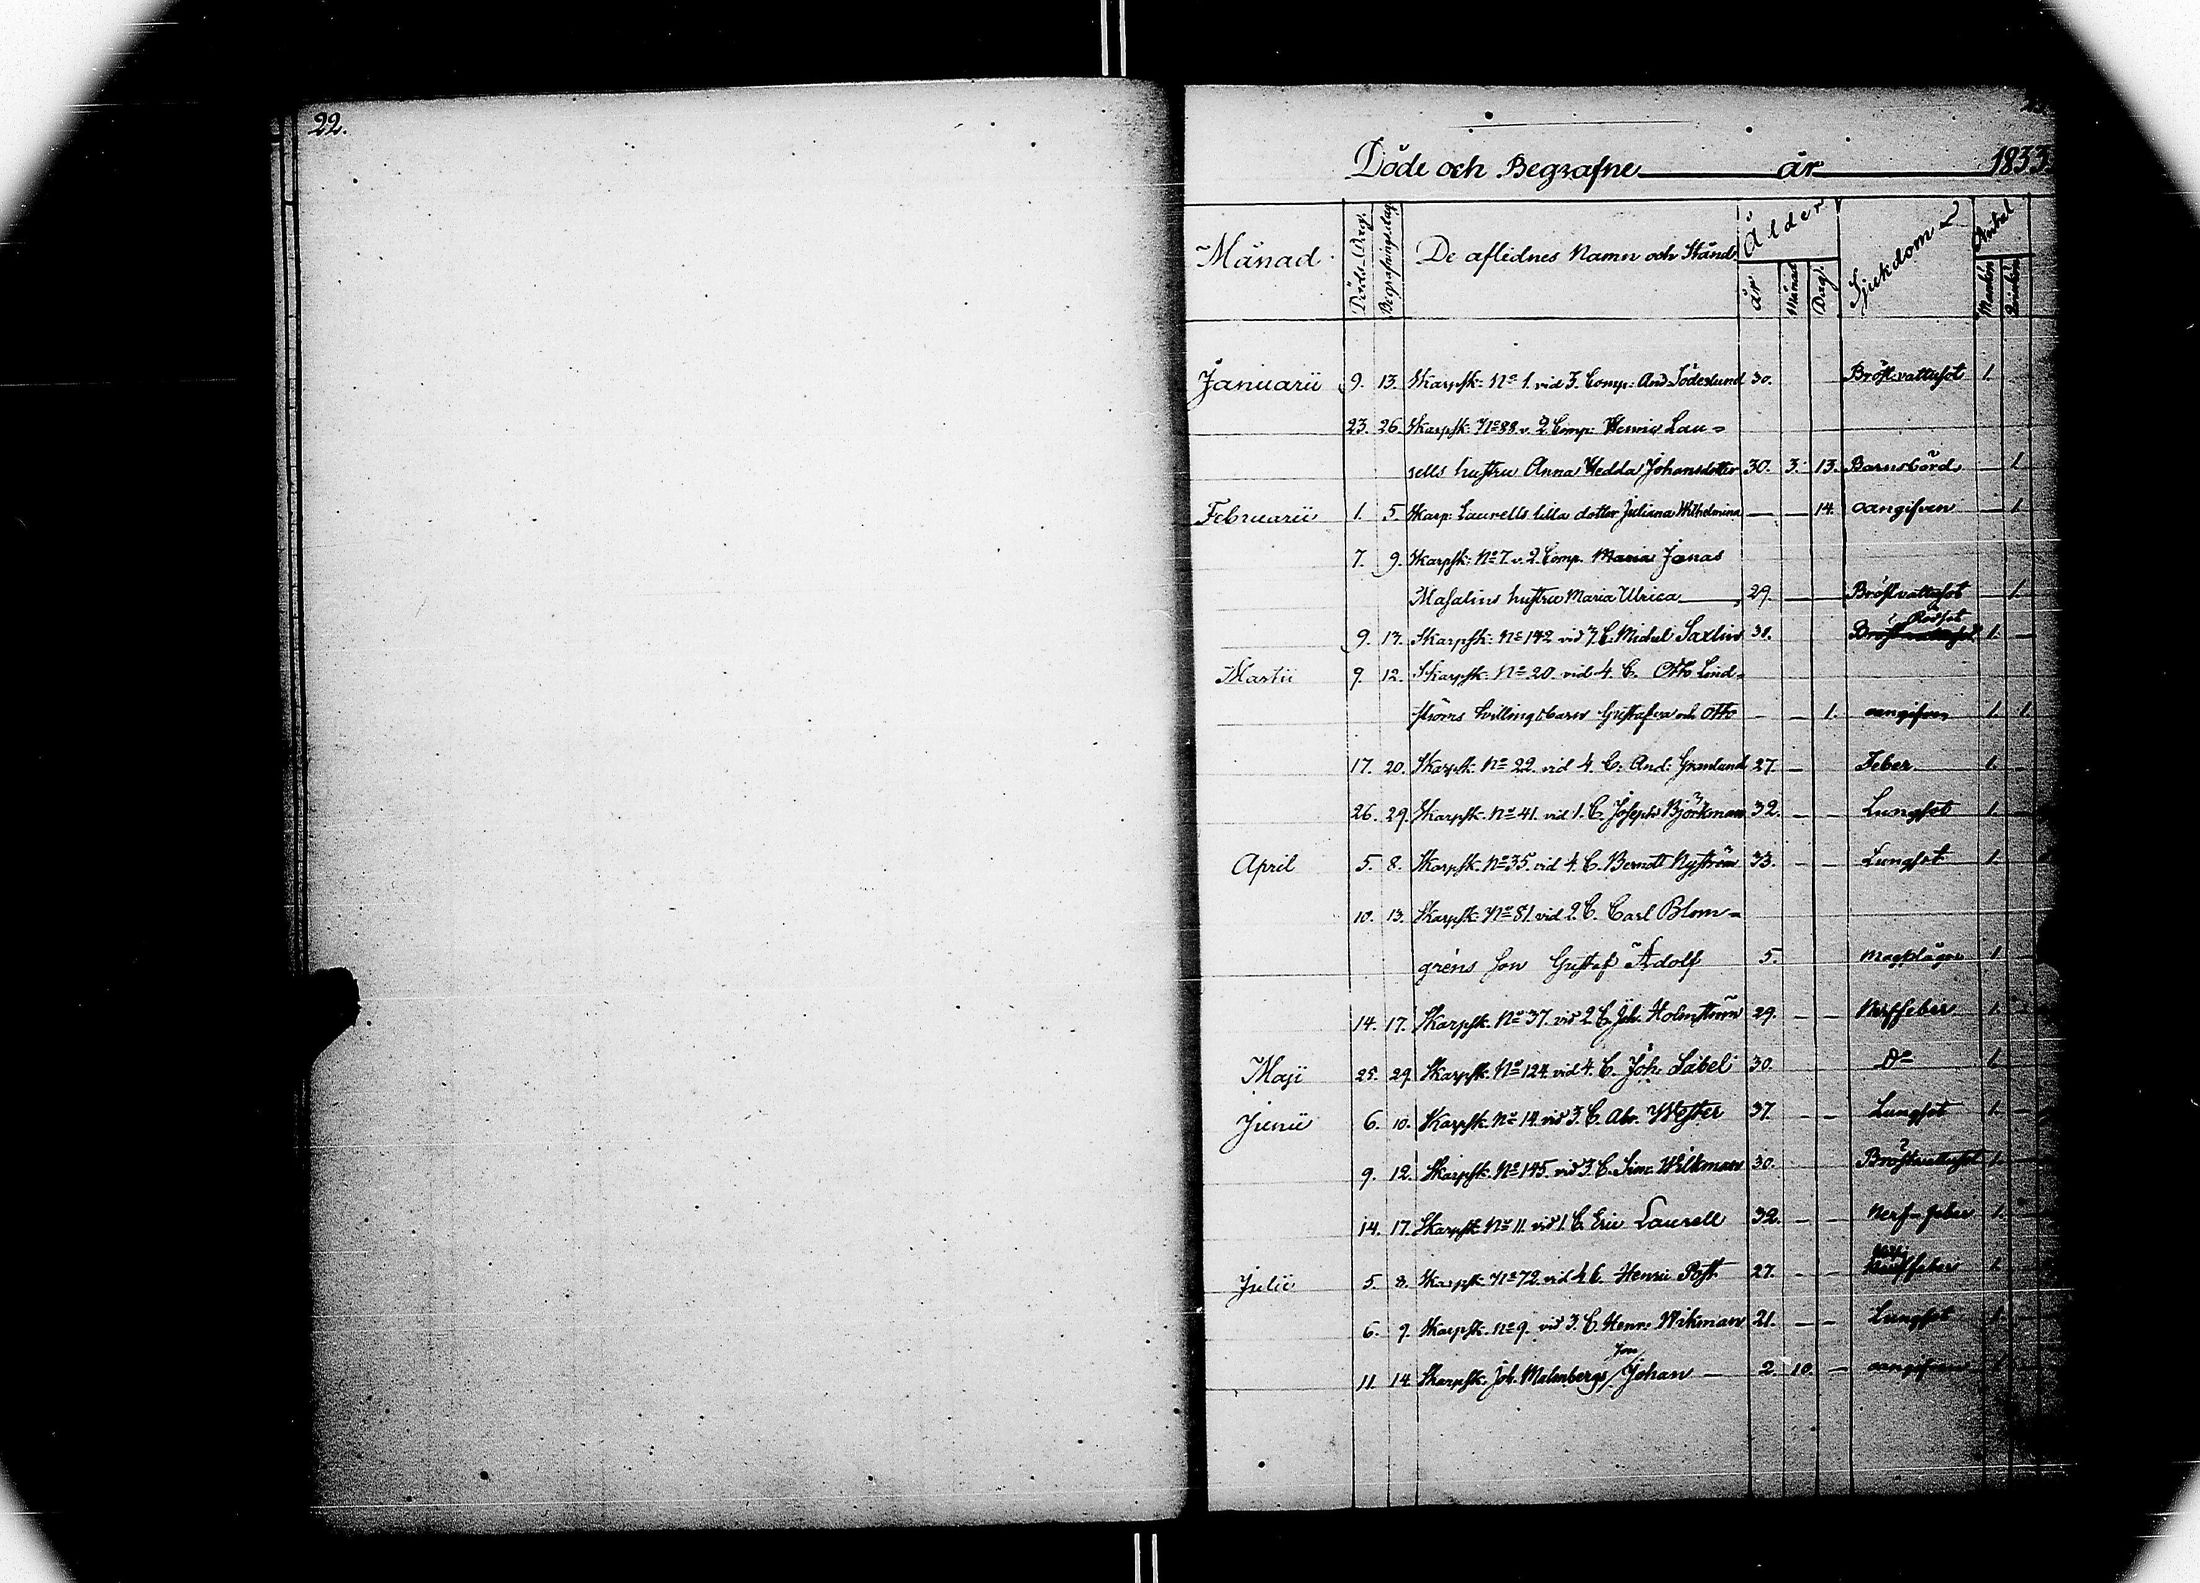 22.
Döde och Begrafne år 1833.
Månad Döds-Dag. Begrafnings dag De aflidnes Namn och Stånd Ålder Sjukdom Antal
år Månad Dag. Mankön Qvinkön
Januarii 9. 13. Skarpsk: No 1. vid 3. Comp: And Söderlund 30. Bröstvattusot 1.
23. 26. Skarpsk: No 88. v. 2 Comp: Henric Lau=
rells hustru Anna Hedda Johansdotter 30. 3. 13. Barnsbörd — 1.
Februarii 1. 5. Skarp: Laurells lilla dotter Juliana Wilhelmina — — 14. oangifven 1.
7. 9. Skarpsk: No 7. v. 2. Comp. Maria Jonas
Masalins hustru Maria Ulrica 29. — — Bröstvattusot — 1.
9. 13. Skarpsk: No 142 vid 3. C. Michel Saxlin 31. Rödsot 1. —
Martii 9. 12. Skarpsk: No 20. vid 4. C. Otto Lind=
ströms tvillingsbarn Gustafva och Otto — — 1. oangifven 1. 1.
17. 20. Skarpsk: No 22. vid 4. C. And: Granlund 27. — Feber 1. —
26. 29. Skarpsk. No 41. vid 1. C. Joseph Björkman 32. — — Lungsot 1. —
April 5. 8. Skarpsk. No 35. vid 4. C. Berndt Nyström 33. — — Lungsot 1.
10. 13. Skarpsk: No 81. vid 2. C. Carl Blom=
gréns Son Gustaf Adolf 5. Magplågor 1.
14. 17. Skarpsk. No 37. vid 2. C. Joh. Holmström 29. — — Nerffeber 1.
Maji 25. 29. Skarpsk. No 124. vid 4. C. Joh. Sabel 30. Do 1.
Junii 6. 10. Skarpsk. No 14. vid 3. C. Abr. Wester 37. — — Lungsot 1. —
9. 12. Skarpsk. No 145. vid 3. C. Sim: Wilkman 30. Bröstvattusot 1.
14. 17. Skarpsk. No 11. vid 1. C. Eric Laurell 32. — — Nerf-feber 1. —
Julii 5. 8. Skarpsk. No 72. vid 4. C. Henric Post 27. — — 1.
6. 9. Skarpsk. No 9. vid 3. C. Henr: Wikman 21. — — Lungsot 1.
11. 14. Skarpsk: Joh. Malmbergs Son Johan — 2. 10. — oangifven 1.